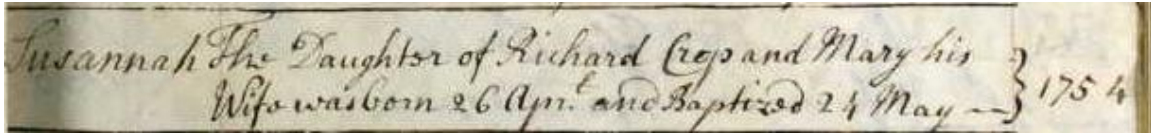 Susannah The Daughter of Richard Crop and Mary his
Wife was born 26 Apr.l and Baptized 24 May — } 1754